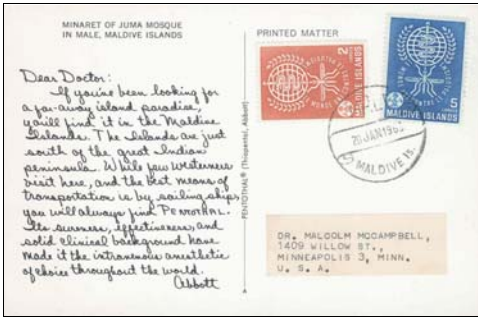 MINARET OF JUMA MOSQUE
IN MALE, MALDIVE ISLANDS
Dear Doctor:
If you've been looking for
a far-away island paradise,
you'll find it in the Maldive
Islands. The Islands are just
south of the great Indian
peninsula. While few westerners
visit here, and the best means of
transportation is by sailing ships,
you will always find PENTOTHAL.
Its sureness, effectiveness, and
solid clinical background have
made it the intravenous anesthetic
of choice throughout the world.
Abbott
PENTOTHAL® (Thiopental, Abbott)
PRINTED MATTER
2
MALDIVE ISLANDS
5
MALDIVE ISLANDS
MALDIVE IS.
DR. MALCOLM MCCAMPBELL,
1409 WILLOW ST.,
MINNEAPOLIS 3, MINN.
U. S. A.